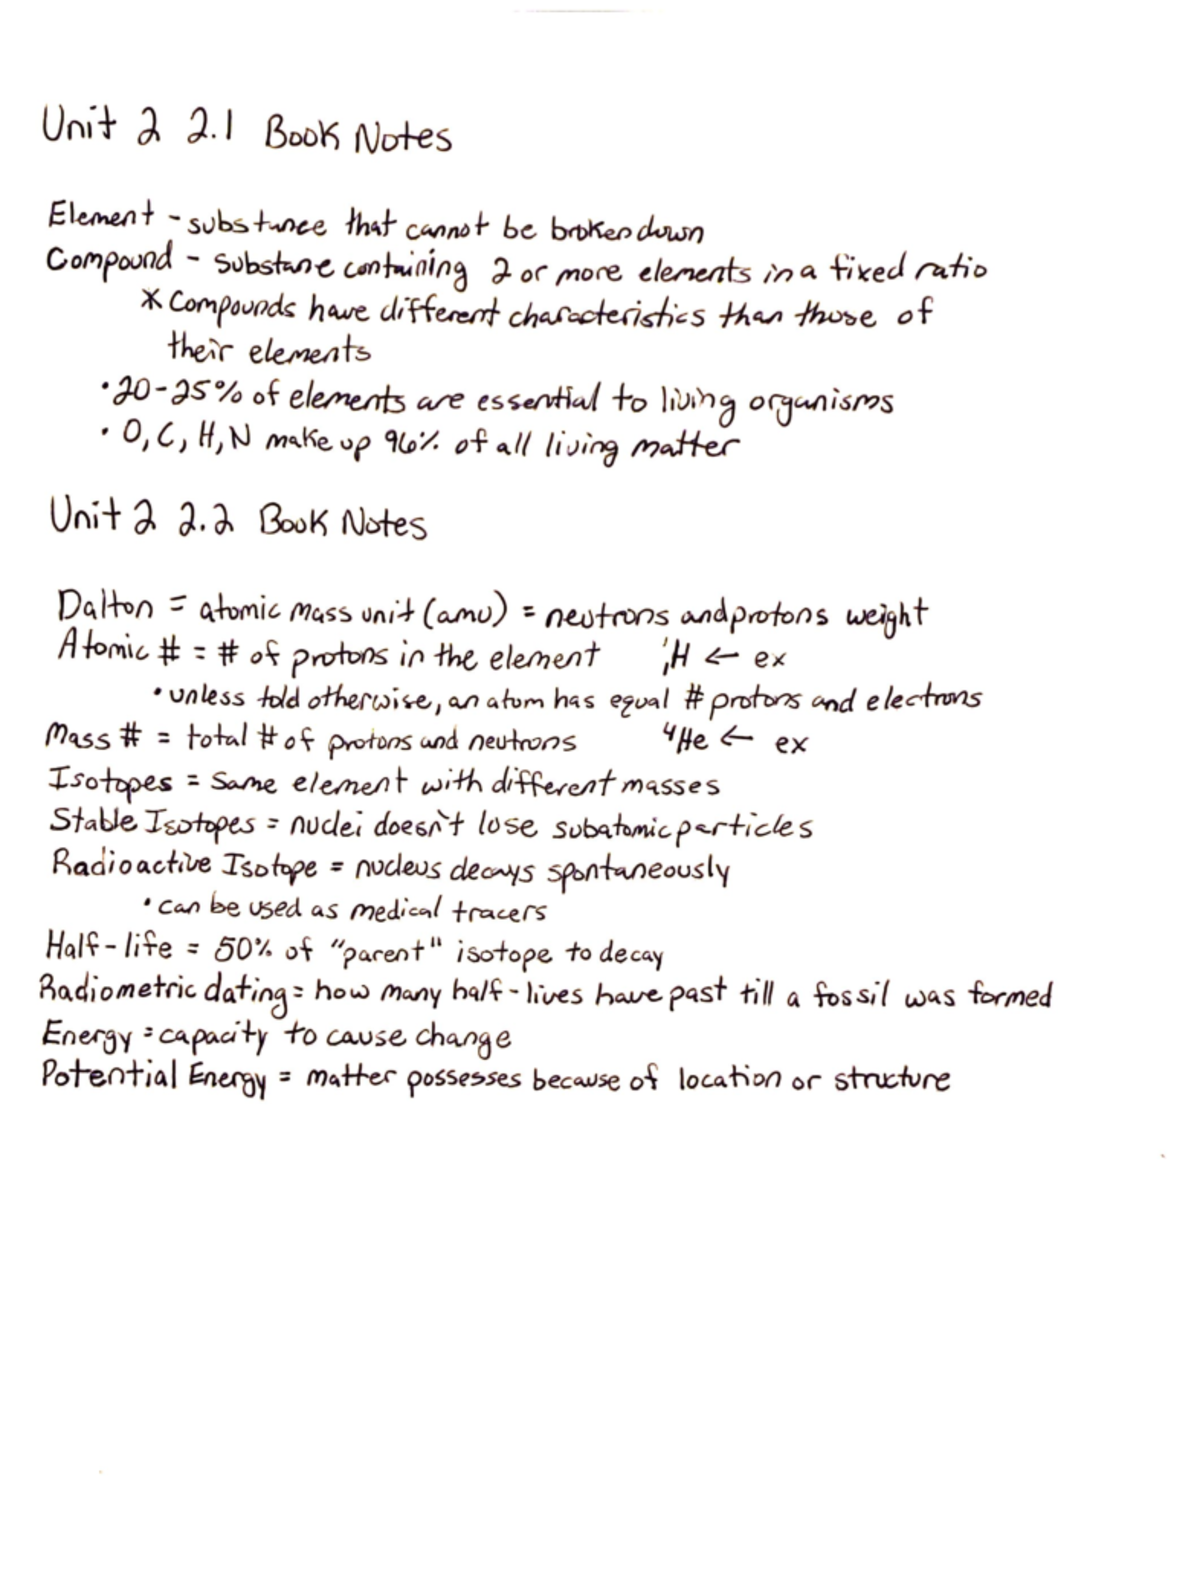 Unit 2 2.1 Book Notes
Element - substance that cannot be broken down
Compound - substane containing 2 or more elements in a fixed ratio
* Compounds have different characteristics than those of
their elements
• 20-25% of elements are essential to living organisms
• O, C, H, N make up 96% of all living matter
Unit 2 2.2 Book Notes
Dalton = atomic mass unit (amu) = neutrons and protons weight
Atomic # = # of protons in the element ¹₁H ← ex
• unless told otherwise, an atom has equal # protons and electrons
Mass # = total # of protons and neutrons ⁴He ← ex
Isotopes = Same element with different masses
Stable Isotopes = nuclei doesn't lose subatomic particles
Radioactive Isotope = nucleus decays spontaneously
• can be used as medical tracers
Half-life = 50% of "parent" isotope to decay
Radiometric dating = how many half-lives have past till a fossil was formed
Energy = capacity to cause change
Potential Energy = matter possesses because of location or structure